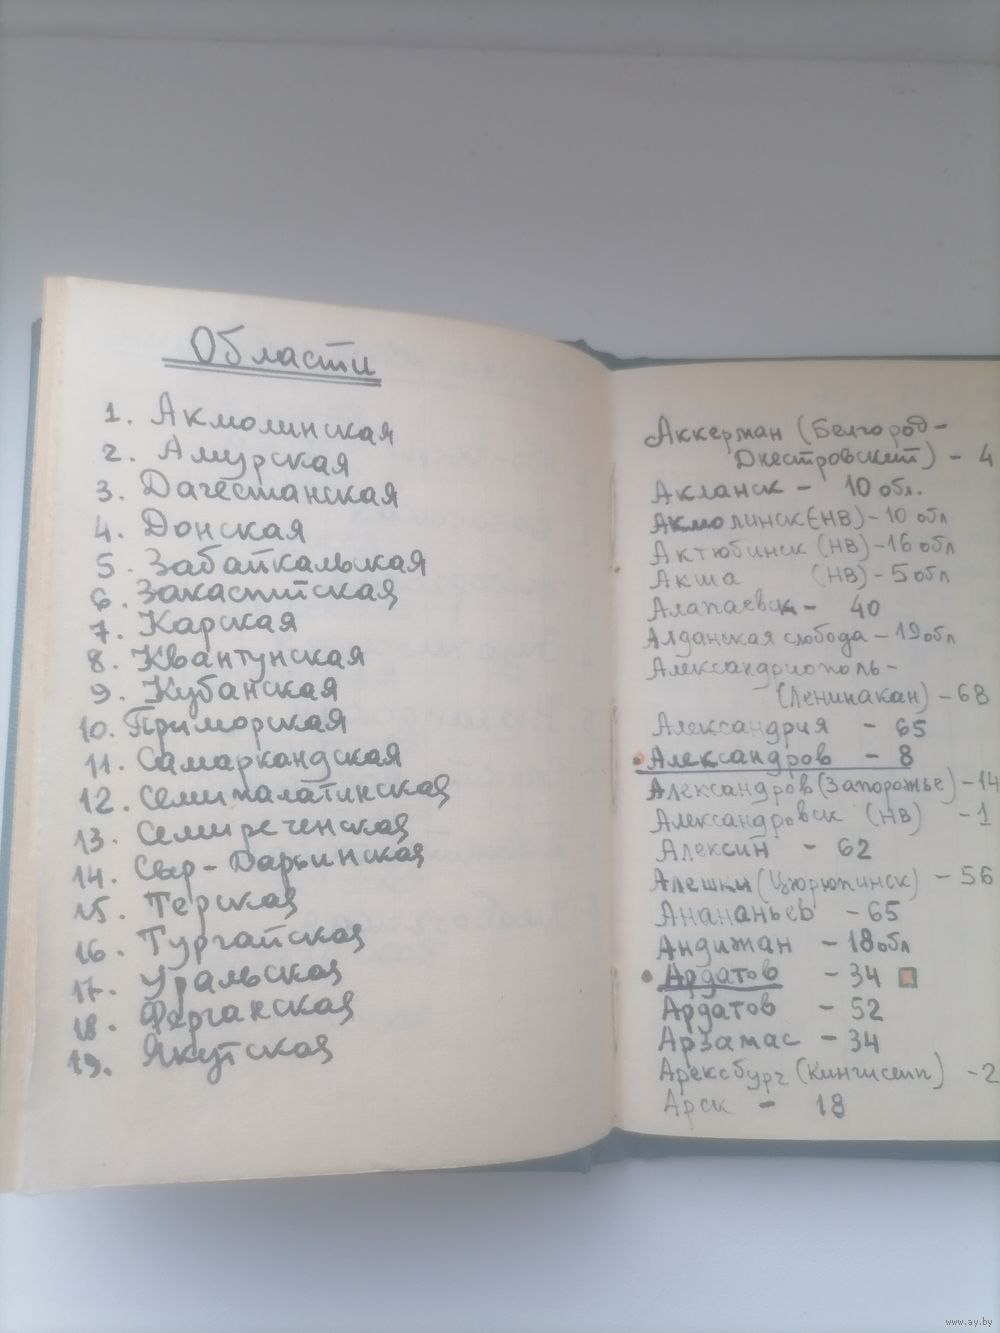 Области
1. Акмолинская
2. Амурская
3. Дагестанская
4. Донская
5. Забайкальская
6. Закаспийская
7. Карская
8. Квантунская
9. Кубанская
10. Приморская
11. Самаркандская
12. Семипалатинская
13. Семиреченская
14. Сыр-Дарьинская
15. Терская
16. Тургайская
17. Уральская
18. Ферганская
19. Якутская
Аккерман (Белгород-
Днестровский) - 4
Акланск - 10 обл.
Акмолинск (НВ) - 10 обл
Актюбинск (НВ) - 16 обл
Акша (НВ) - 5 обл
Алапаевск - 40
Алданская слобода - 19 обл
Александриополь-
(Ленинакан) - 68
Александрия - 65
Александров - 8
Александров (Запорожье) - 14
Александровск (НВ) - 1
Алексин - 62
Алешки (Цюрюпинск) - 56
Ананьев - 65
Андижан - 18 обл
Ардатов - 34
Ардатов - 52
Арзамас - 34
Аренсбург (Кингисепп) - 2
Арск - 18
www.ay.by